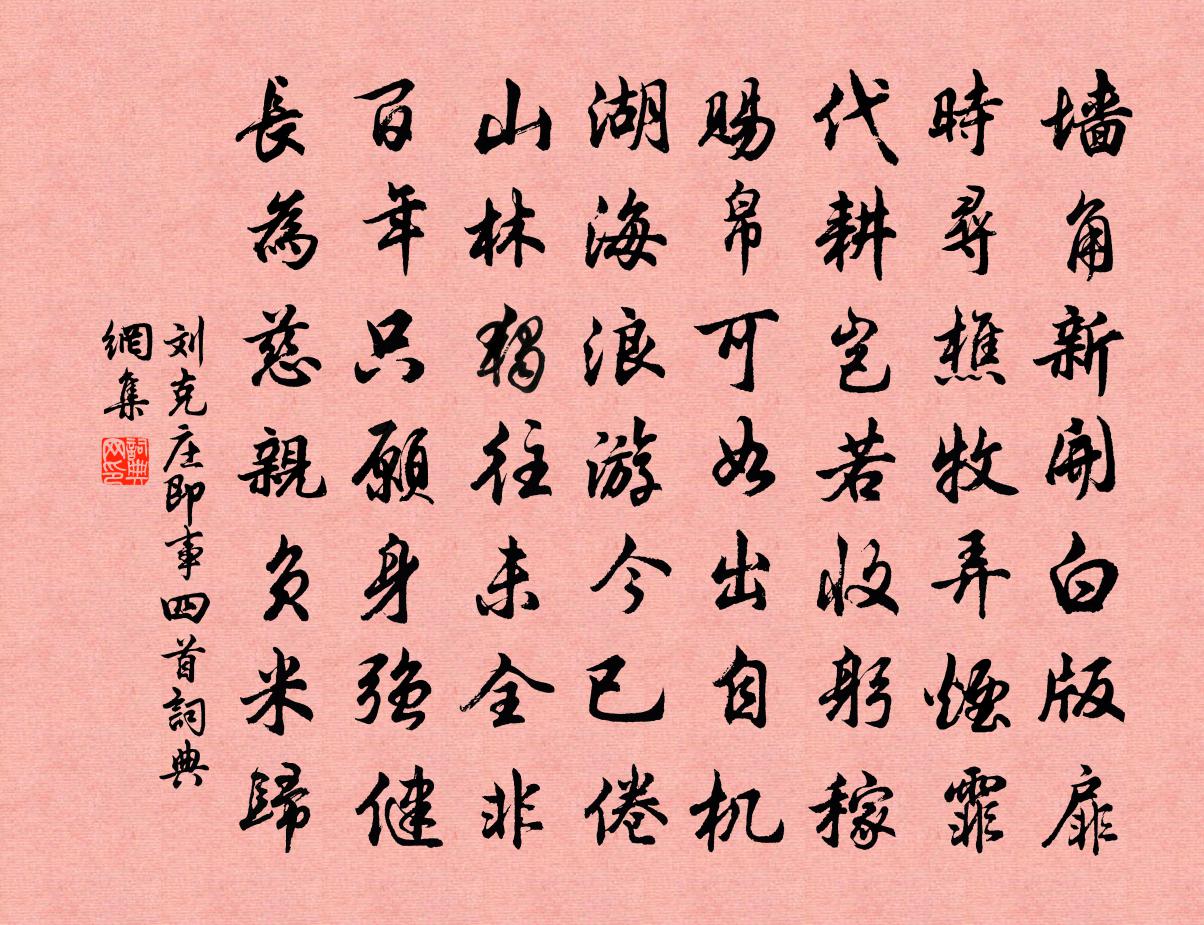 墙角新開白版扉
時尋樵牧弄煙霏
代耕豈若收躬稼
賜帛可如出自机
湖海浪游今已倦
山林獨往未全非
百年只願身強健
長為慈親負米歸
刘克庄即事四首詞典
網集
詞典网印